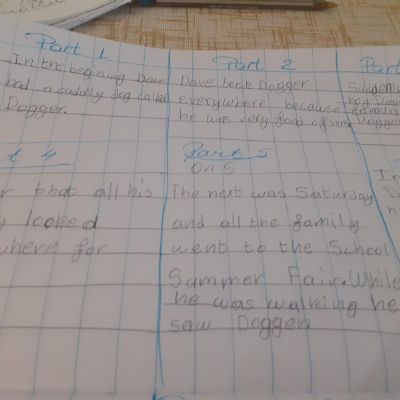 Part 1
In the begining Dave
had a cuddly dog called
Dogger.
Part 2
Dave took Dogger
everywhere because
he was very fond of him
Part
Suddenly
Dogger
t 4
r that all his
y looked
where for
Part 5
on 5
The next was Saturday
and all the family
went to the School
Summer Fair. While
he was walking he
saw Dogger
In